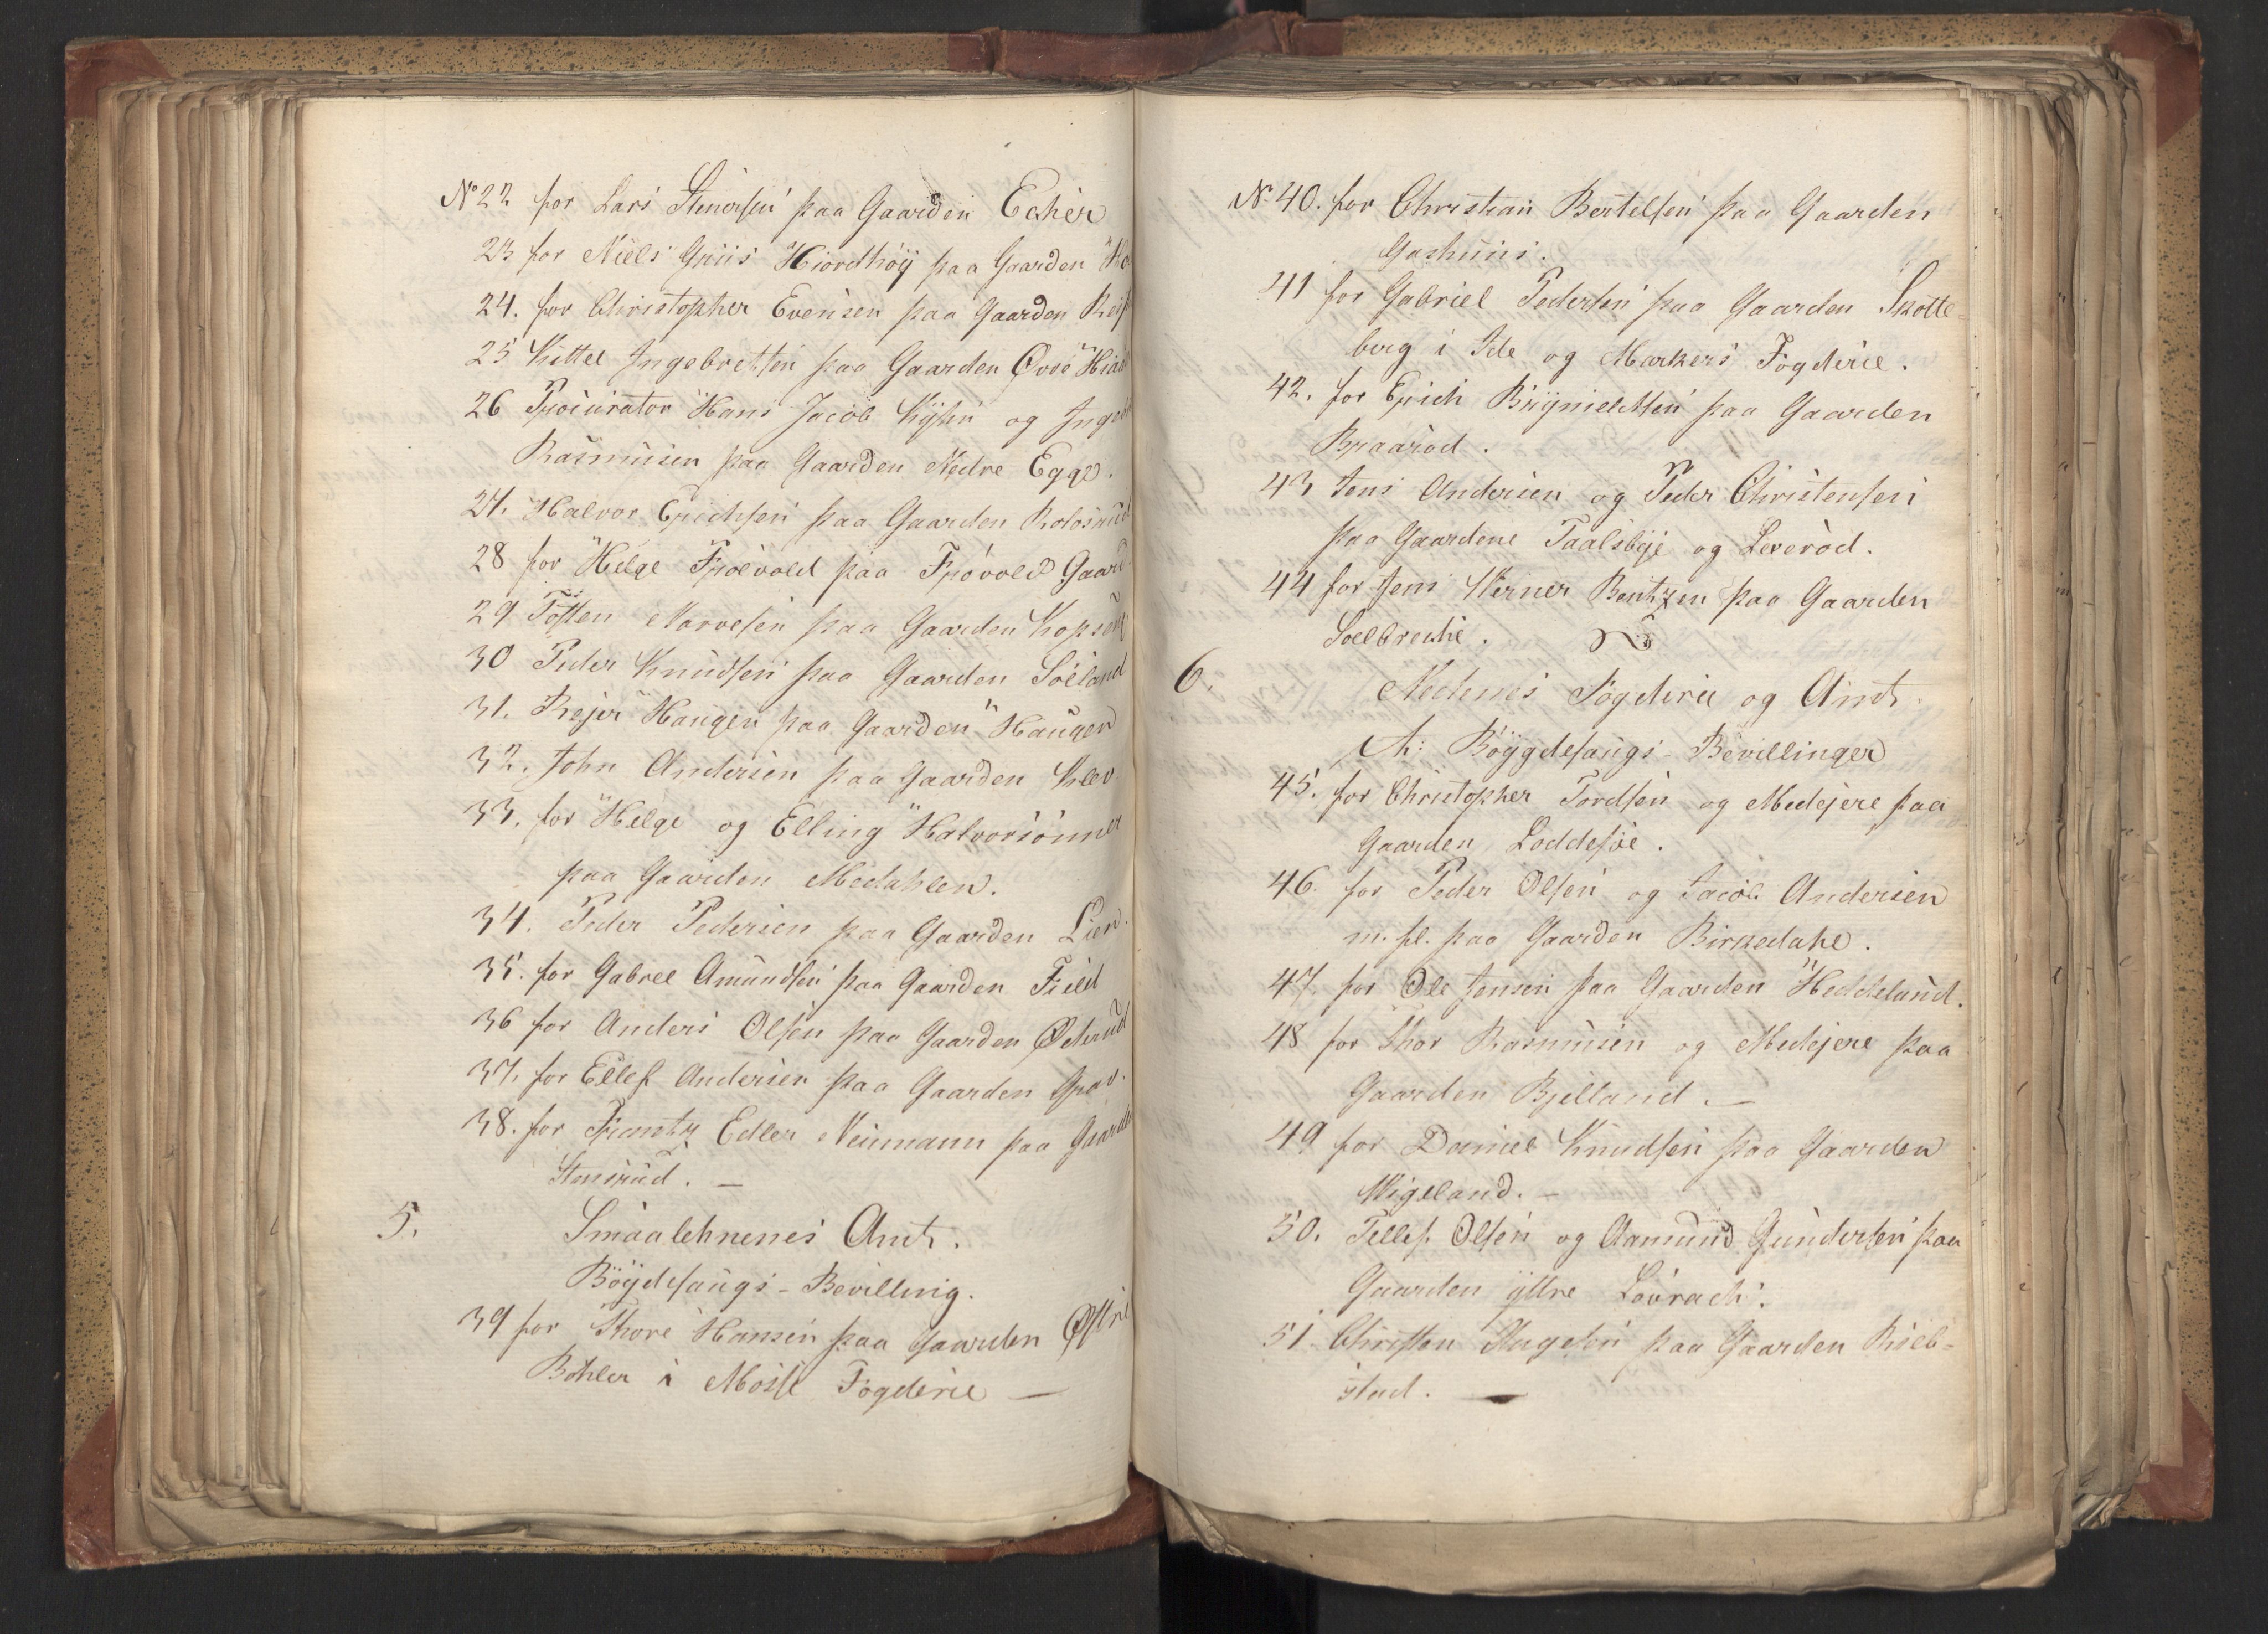 No 22 for Lars Stenersen paa Gaarden Ecker
23 for Niels Griis Hiordhøÿ paa Gaarden
24. for Christopher Evensen paa Gaarden
25 Kittel Ingebretsen paa Gaarden Øvre
26 Procurator Hans Jacob og
Rasmusen paa Gaarden Nedre Egge.
27. Halvor Erichsen paa Gaarden Kolosrud
28 for Helge Frøevold paa Frøvold Gaard.
29 Tosten Narvesen paa Gaarden
30 Peder Knudsen paa Gaarden Söeland
31. Rejer Haugen paa Gaarden Haugen
32. John Andersen paa Gaarden Klev
33. for Helge og Elling Halvorsönner
paa Gaarden Medahlen.
34. Peder Pedersen paa Gaarden Lien.
35. for Gabrel Amundsen paa Gaarden Field
36 for Anders Olsen paa Gaarden
37. for Ellef Andersen paa Gaarden
38. for Frantz Edler Neumann paa Gaarden
Stensrud. —
5. Smaalehnenes Amt.
Böÿdesaugs-Bevilling.
39 for Thore Hansen paa Gaarden Østre
Bohler i Mosse Fogderie —
No 40. for Christian Bertelsen paa Gaarden
Gashuus.
41 for Gabriel Pedersen paa Gaarden Skotte-
berg i Ide og Markers Fogderie.
42. for Erich Brÿnieldsen paa Gaarden
Braaröd.
43 Jens Andersen og Peder Christensen
paa Gaardene Taalsbye og Leeröd.
44 for Jens Werner Bentzen paa Gaarden
Soelbrecke.
6. Nedenes Fogderie og Amt.
A: Böÿgdesaugs-Bevillinger
45. for Christopher Tordsen og Medejere paa
Gaarden Loddesöe.
46. for Peder Olsen og Jacob Andersen
m. fl. paa Gaarden Birkedahl.
47 for Ole Jensen paa Gaarden Heddeland.
48 for Thor Rasmusen og Medejere paa
Gaarden Bjelland. —
49 for Daniel Knudsen paa Gaarden
Wigeland. —
50. Tellef Olsen og Aamund Gundersen paa
Gaarden ÿttre Lövrack.
51 Christen Aagesen paa Gaarden
stad. —